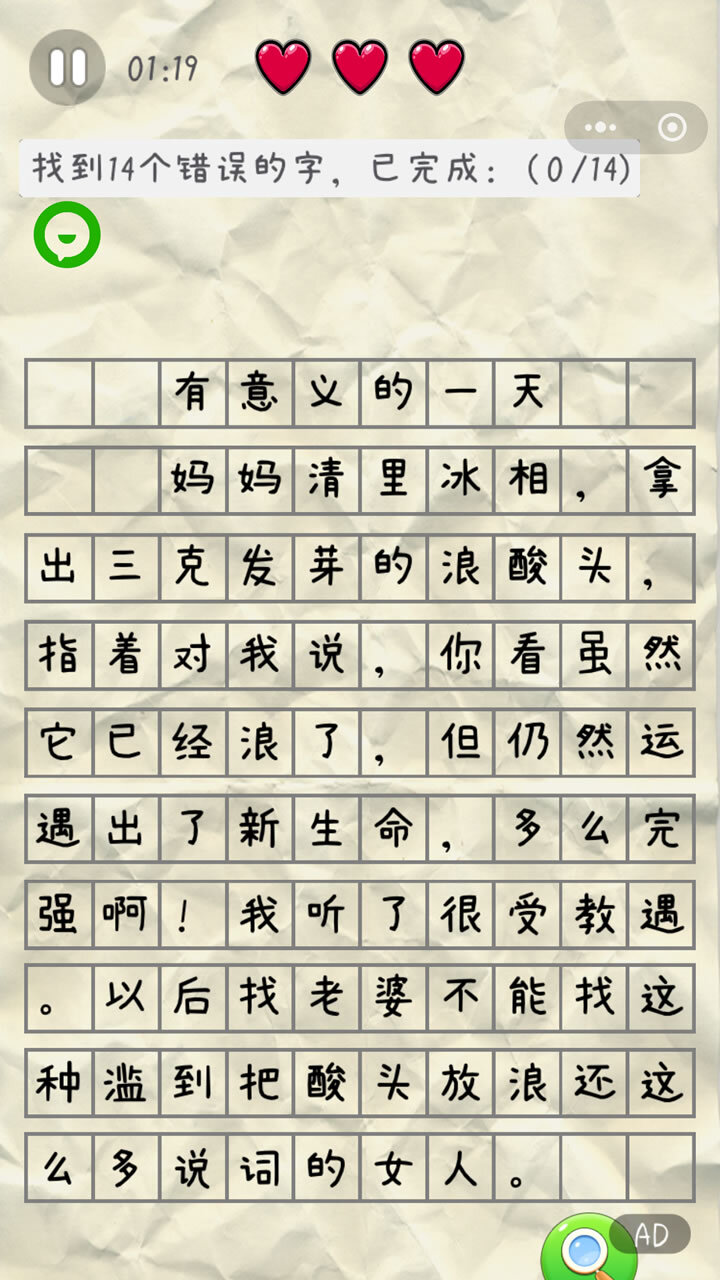 01:19
找到14个错误的字，已完成：（0/14）
有意义的一天
妈妈清里冰相，拿
出三克发芽的浪酸头，
指着对我说，你看虽然
它已经浪了，但仍然运
遇出了新生命，多么完
强啊！我听了很受教遇
。以后找老婆不能找这
种滥到把酸头放浪还这
么多说词的女人。
AD